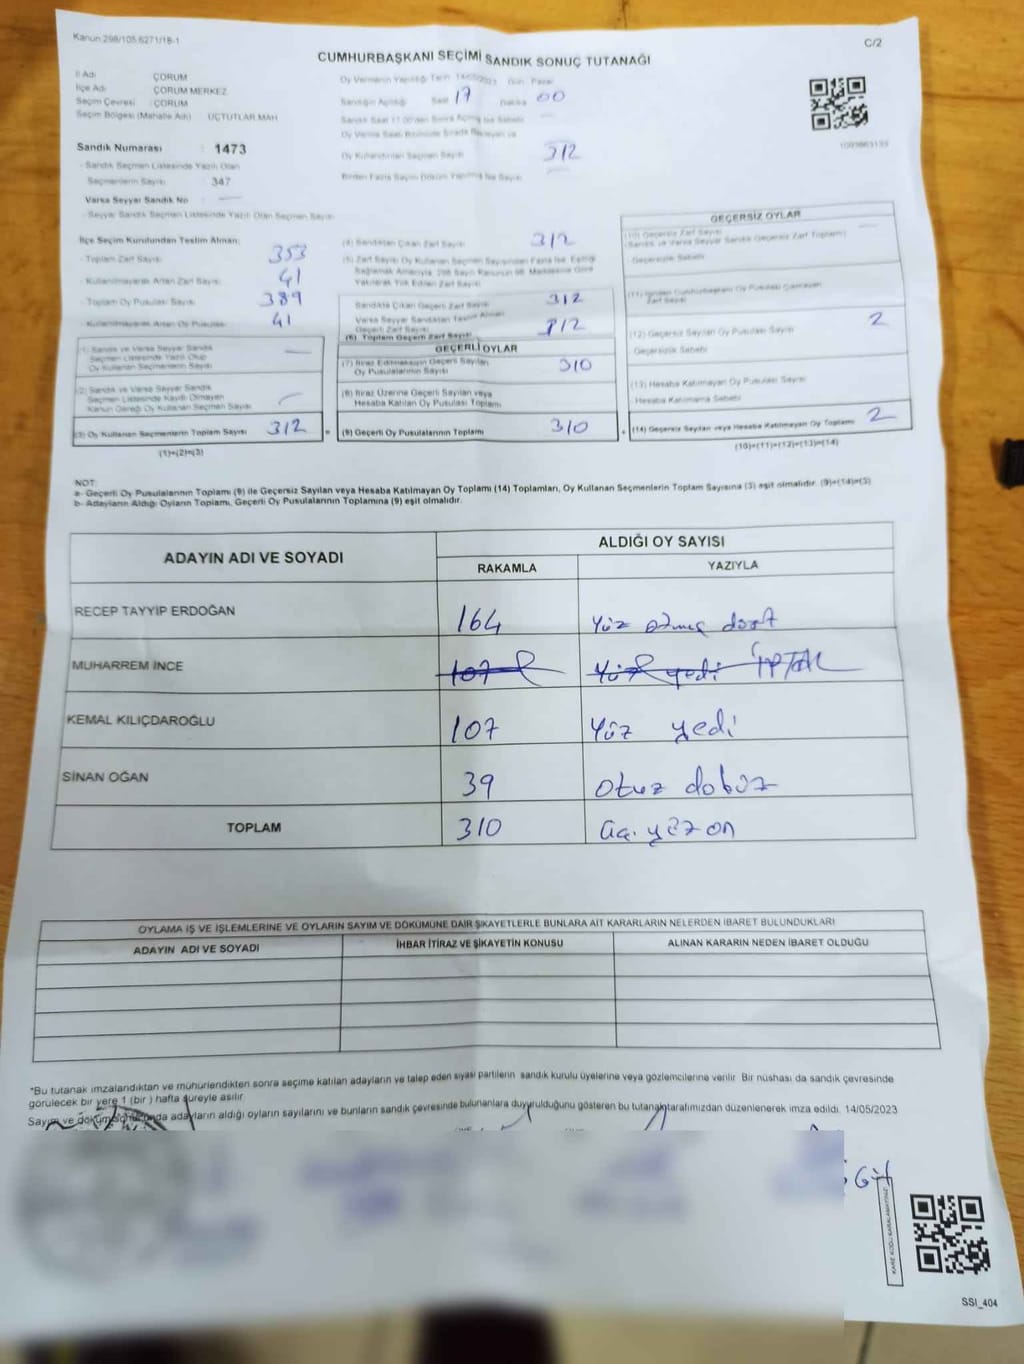 Kanun 298/105 6271/18-1
C/2
CUMHURBAŞKANI SEÇİMİ SANDIK SONUÇ TUTANAĞI
İl Adı ÇORUM
İlçe Adı ÇORUM MERKEZ
Seçim Çevresi : ÇORUM
Seçim Bölgesi (Mahalle Adı) ÜÇTUTLAR MAH
Oy Vermenin Yapıldığı Tarih 14/05/2023 Gün Pazar
Sandığın Açıldığı Saat 17 Dakika 00
Oy Kullandırılan Seçmen Sayısı 312
Birden Fazla Sayım Döküm Yapılmış İse Sayısı
Sandık Numarası : 1473
- Sandık Seçmen Listesinde Yazılı Olan
Seçmenlerin Sayısı 347
Varsa Seyyar Sandık No
- Seyyar Sandık Seçmen Listesinde Yazılı Olan Seçmen Sayısı
İlçe Seçim Kurulundan Teslim Alınan:
- Toplam Zarf Sayısı 353
- Kullanılmayarak Artan Zarf Sayısı 41
- Toplam Oy Pusulası Sayısı 389
- Kullanılmayarak Artan Oy Pusulası 41
(1) Sandık ve Varsa Seyyar Sandık
Seçmen Listesinde Yazılı Olup
Oy Kullanan Seçmenlerin Sayısı
(2) Sandık ve Varsa Seyyar Sandık
Seçmen Listesinde Kaydı Olmayan
Kanun Gereği Oy Kullanan Seçmen Sayısı
(3) Oy Kullanan Seçmenlerin Toplam Sayısı 312
(1)+(2)=(3)
(4) Sandıktan Çıkan Zarf Sayısı 312
Sandıkta Çıkan Geçerli Zarf Sayısı 312
Varsa Seyyar Sandıktan Teslim Alınan
Geçerli Zarf Sayısı
(6) Toplam Geçerli Zarf Sayısı 312
GEÇERLİ OYLAR
(7) İtiraz Edilmeksizin Geçerli Sayılan
Oy Pusulalarının Sayısı 310
(8) İtiraz Üzerine Geçerli Sayılan veya
Hesaba Katılan Oy Pusulası Toplamı
(9) Geçerli Oy Pusulalarının Toplamı 310
GEÇERSİZ OYLAR
(10) Geçersiz Zarf Sayısı
(Sandık ve Varsa Seyyar Sandık Geçersiz Zarf Toplamı)
Geçersizlik Sebebi
(11) İçinden Cumhurbaşkanı Oy Pusulası Çıkmayan
Zarf Sayısı
(12) Geçersiz Sayılan Oy Pusulası Sayısı 2
Geçersizlik Sebebi
(13) Hesaba Katılmayan Oy Pusulası Sayısı
Hesaba Katılmama Sebebi
(14) Geçersiz Sayılan veya Hesaba Katılmayan Oy Toplamı 2
(10)+(11)+(12)+(13)=(14)
NOT:
a- Geçerli Oy Pusulalarının Toplamı (9) ile Geçersiz Sayılan veya Hesaba Katılmayan Oy Toplamı (14) Toplamları, Oy Kullanan Seçmenlerin Toplam Sayısına (3) eşit olmalıdır. (9)+(14)=(3)
b- Adayların Aldığı Oyların Toplamı, Geçerli Oy Pusulalarının Toplamına (9) eşit olmalıdır.
ADAYIN ADI VE SOYADI
ALDIĞI OY SAYISI
RAKAMLA YAZIYLA
RECEP TAYYİP ERDOĞAN 164 Yüz atmış dört
MUHARREM İNCE 107 Yüz yedi İPTAL
KEMAL KILIÇDAROĞLU 107 Yüz yedi
SİNAN OĞAN 39 Otuz dokuz
TOPLAM 310 üç yüz on
OYLAMA İŞ VE İŞLEMLERİNE VE OYLARIN SAYIM VE DÖKÜMÜNE DAİR ŞİKAYETLERLE BUNLARA AİT KARARLARIN NELERDEN İBARET BULUNDUKLARI
ADAYIN ADI VE SOYADI İHBAR İTİRAZ VE ŞİKAYETİN KONUSU ALINAN KARARIN NEDEN İBARET OLDUĞU
*Bu tutanak imzalandıktan ve mühürlendikten sonra seçime katılan adayların ve talep eden siyasi partilerin sandık kurulu üyelerine veya gözlemcilerine verilir. Bir nüshası da sandık çevresinde
görülecek bir yere 1 (bir ) hafta süreyle asılır.
Sayım ve döküm sonucunda adayların aldığı oyların sayılarını ve bunların sandık çevresinde bulunanlara duyurulduğunu gösteren bu tutanak tarafımızdan düzenlenerek imza edildi. 14/05/2023
KARE KODU KARALAMAYINIZ
SSI_404